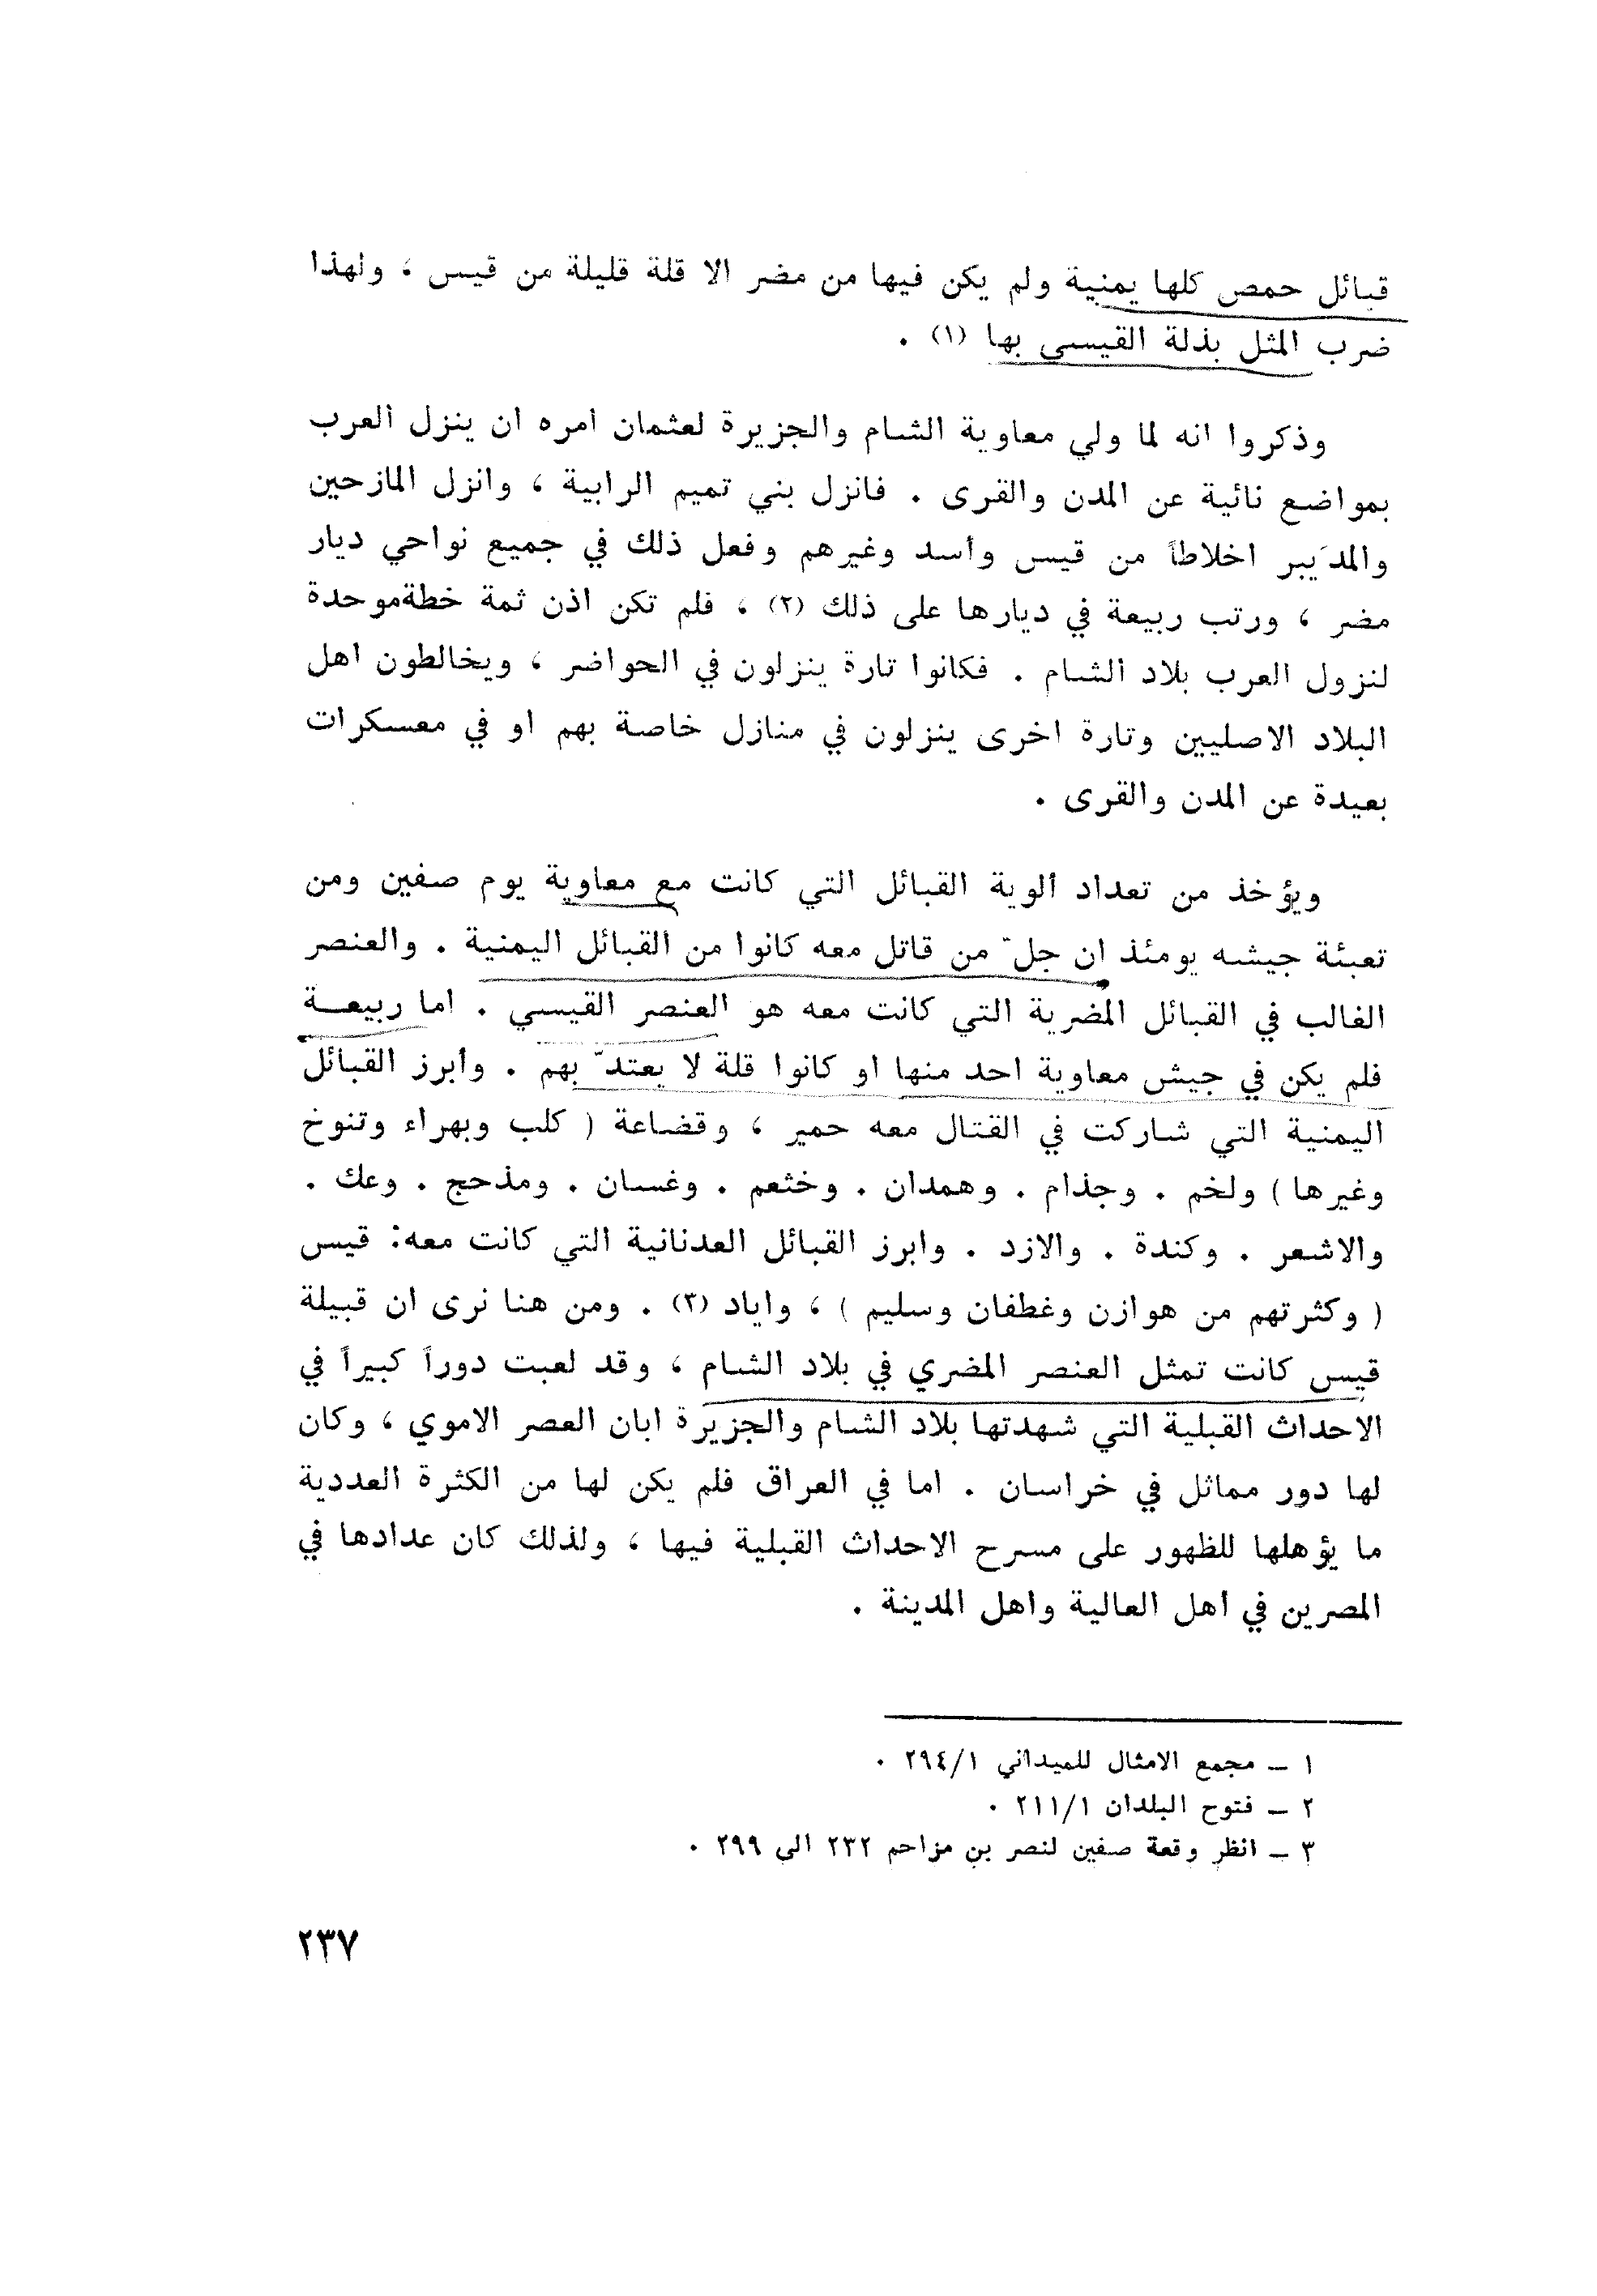 قبائل حمص كلها يمنية ولم يكن فيها من مضر الا قلة قليلة من قيس ، ولهذا
ضرب المثل بذلة القيسي بها (١) .
وذكروا انه لما ولي معاوية الشام والجزيرة لعثمان امره ان ينزل العرب
بمواضع نائية عن المدن والقرى . فانزل بني تميم الرابية ، وانزل المازحين
والمدَيبر اخلاطاً من قيس وأسد وغيرهم وفعل ذلك في جميع نواحي ديار
مضر ، ورتب ربيعة في ديارها على ذلك (٢) ، فلم تكن اذن ثمة خطةموحدة
لنزول العرب بلاد الشام . فكانوا تارة ينزلون في الحواضر ، ويخالطون اهل
البلاد الاصليين وتارة اخرى ينزلون في منازل خاصة بهم او في معسكرات
بعيدة عن المدن والقرى .
ويؤخذ من تعداد ألوية القبائل التي كانت مع معاوية يوم صفين ومن
تعبئة جيشه يومئذ ان جلّ من قاتل معه كانوا من القبائل اليمنية . والعنصر
الغالب في القبائل المضرية التي كانت معه هو العنصر القيسي . اما ربيعـــة
فلم يكن في جيش معاوية احد منها او كانوا قلة لا يعتدّ بهم . وأبرز القبائل
اليمنية التي شاركت في القتال معه حمير ، وقضاعة ( كلب وبهراء وتنوخ
وغيرها ) ولخم . وجذام . وهمدان . وخثعم . وغسان . ومذحج . وعك .
والاشعر . وكندة . والازد . وابرز القبائل العدنانية التي كانت معه: قيس
( وكثرتهم من هوازن وغطفان وسليم ) ، واياد (٣) . ومن هنا نرى ان قبيلة
قيس كانت تمثل العنصر المضري في بلاد الشام ، وقد لعبت دوراً كبيراً في
الاحداث القبلية التي شهدتها بلاد الشام والجزيرة ابان العصر الاموي ، وكان
لها دور مماثل في خراسان . اما في العراق فلم يكن لها من الكثرة العددية
ما يؤهلها للظهور على مسرح الاحداث القبلية فيها ، ولذلك كان عدادها في
المصرين في اهل العالية واهل المدينة .
١ – مجمع الامثال للميداني ٢٩٤/١ .
٢ – فتوح البلدان ٢١١/١ .
٣ – انظر وقعة صفين لنصر بن مزاحم ٢٣٢ الى ٢٩٩ .
٢٣٧